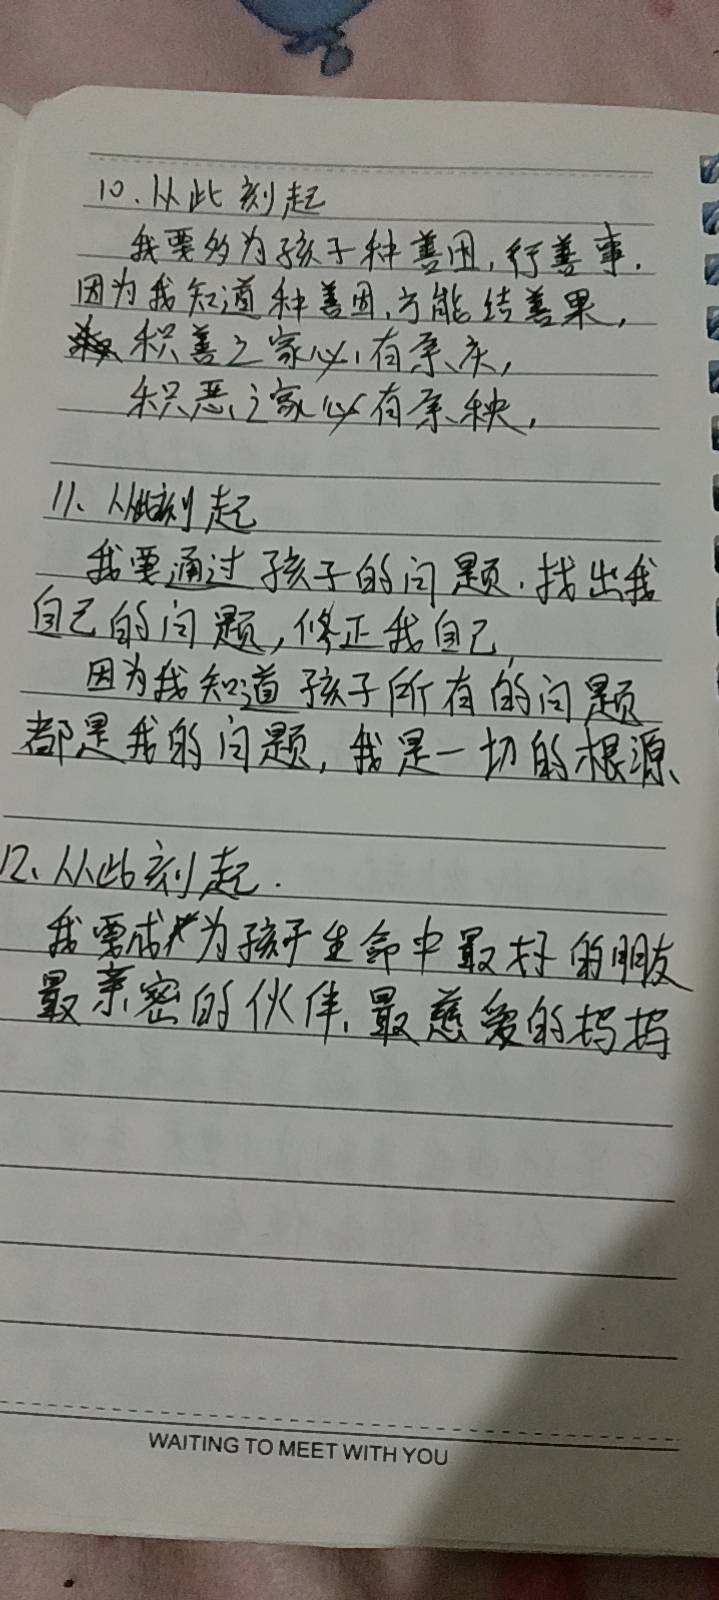 10、从此刻起
我要多为孩子种善因,行善事.
因为我知道种善因,方能结善果,
积善之家必有余庆,
积恶之家必有余秧,
11、从此刻起
我要通过孩子的问题.找出我
自己的问题,修正我自己,
因为我知道孩子所有的问题
都是我的问题,我是一切的根源、
12、从此刻起.
我要成为孩子生命中最好的朋友
最亲密的伙伴、最慈爱的妈妈
WAITING TO MEET WITH YOU